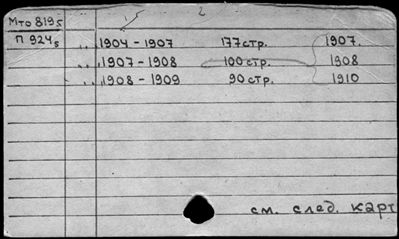 2
Мто 8195
П 9245 „ „ 1904 - 1907 177 стр. 1907.
„ „ 1907 - 1908 100 стр. 1908
„ „ 1908 - 1909 90 стр. 1910
см. след. карт